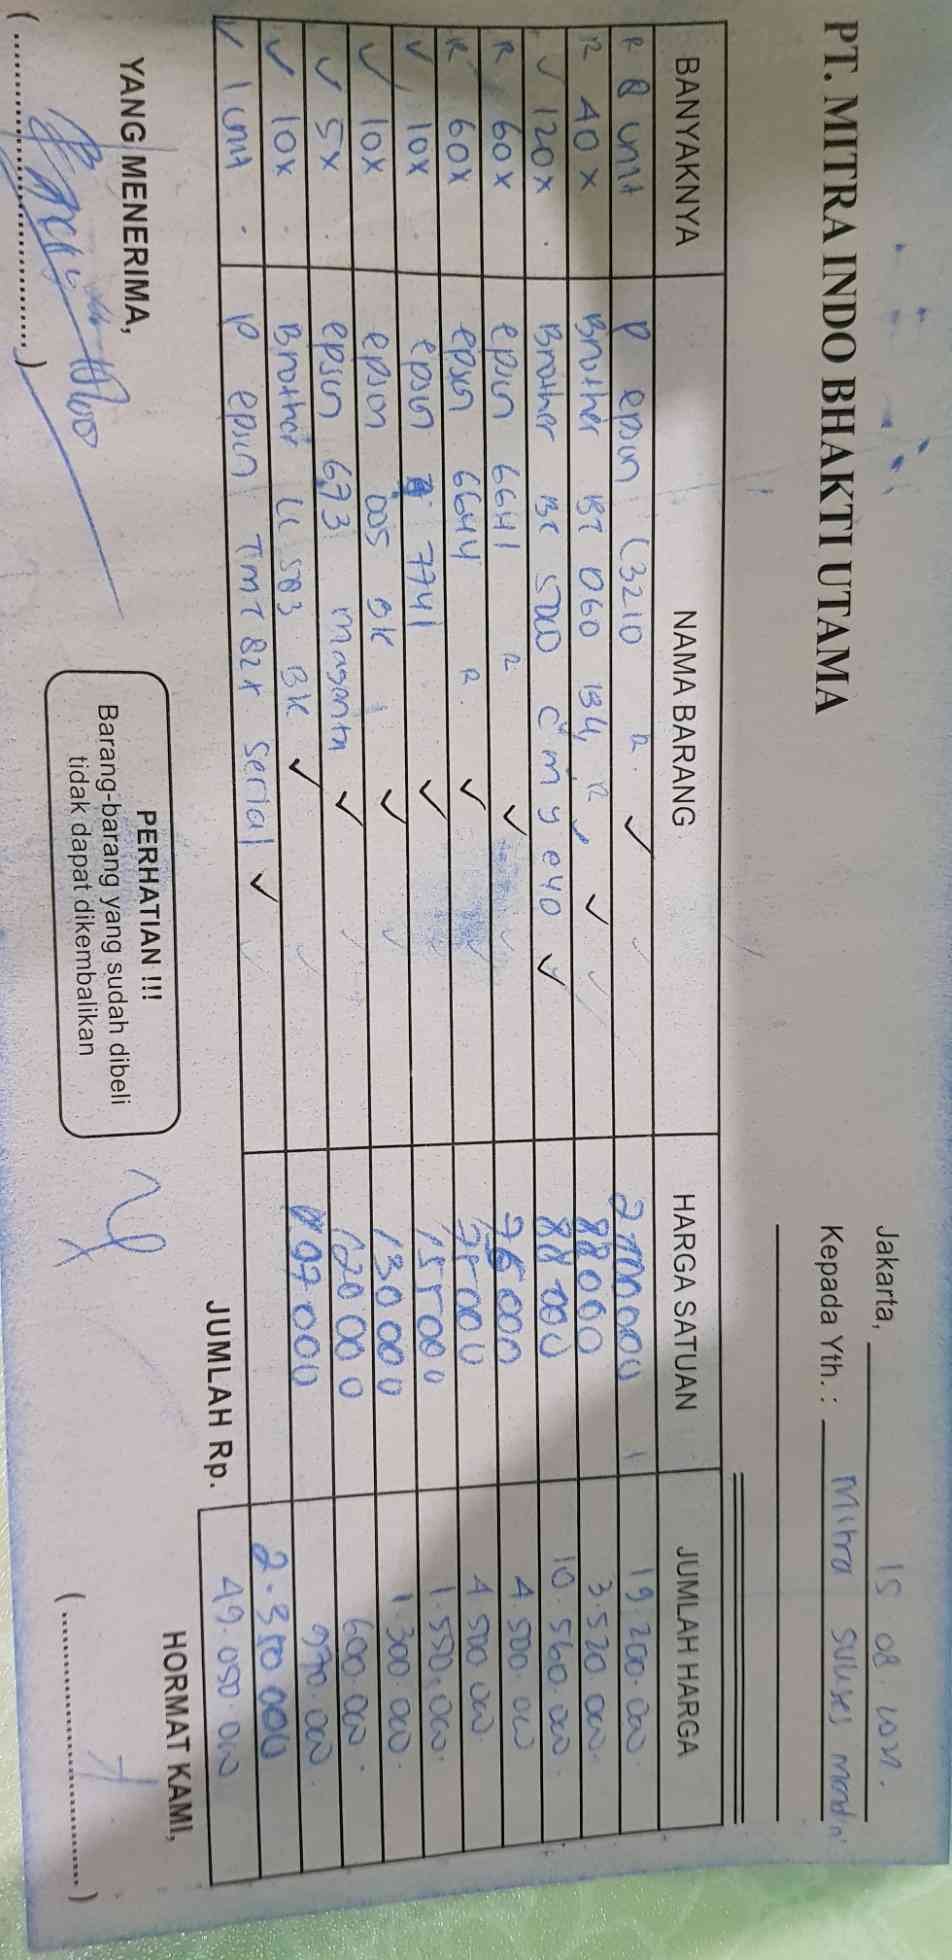 PT. MITRA INDO BHAKTI UTAMA
Jakarta, 15 08
Kepada Yth. : Mitra sukses mandiri
BANYAKNYA NAMA BARANG HARGA SATUAN JUMLAH HARGA
R 8 unit P epson L3210 R. 2400000 19.200.000
R 40 x Brother BT D60 BK, R 88000 3.520.000
120 x Brother BT 5000 c m y @40 88000 10.560.000
R 60 x epson 6641 R 75000 4.500.000
R 60x epson 6644 R 75000 4.500.000
10x epson 7741 155000 1.550.000
10x epson 005 BK 130000 1.300.000
5x epson 673 maganta 120000 600.000
10x Brother BK 97000 970.000
1 unit P epson TMT 82x serial 2.310.000
JUMLAH Rp. 49.050.000
YANG MENERIMA,
PERHATIAN !!!
Barang-barang yang sudah dibeli
tidak dapat dikembalikan
HORMAT KAMI,